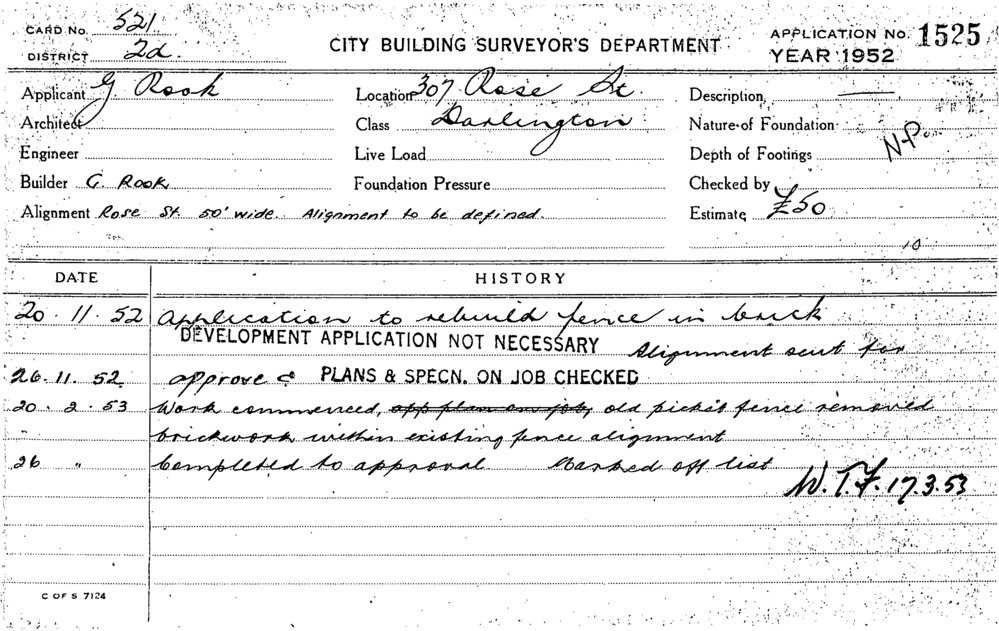 CARD No. 521
DISTRICT 2d.
CITY BUILDING SURVEYOR'S DEPARTMENT
APPLICATION No. 1525
YEAR 1952
Applicant G Rook Location 307 Rose St. Description
Architect Class Darlington Nature of Foundation
Engineer Live Load Depth of Footings N.P.
Builder G. Rook Foundation Pressure Checked by
Alignment Rose St. 50' wide. Alignment to be defined. Estimate £50
10
DATE HISTORY
20. 11. 52 Application to rebuild fence in brick
DEVELOPMENT APPLICATION NOT NECESSARY Alignment sent for
26. 11. 52. approve PLANS & SPECN. ON JOB CHECKED
20. 2. 53 Work commenced, app plan on job, old picket fence removed
" brickwork within existing fence alignment
26 " Completed to approval Marked off list
W.T.F. 17.3.53
C OF S 7124